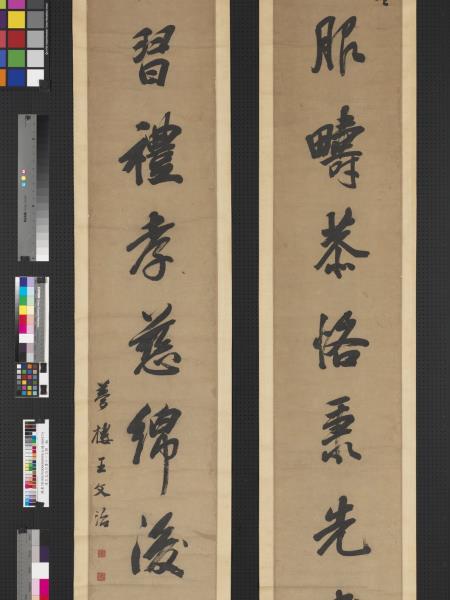 服疇恭恪秉先
習禮孝慈綿後
夢樓王文治